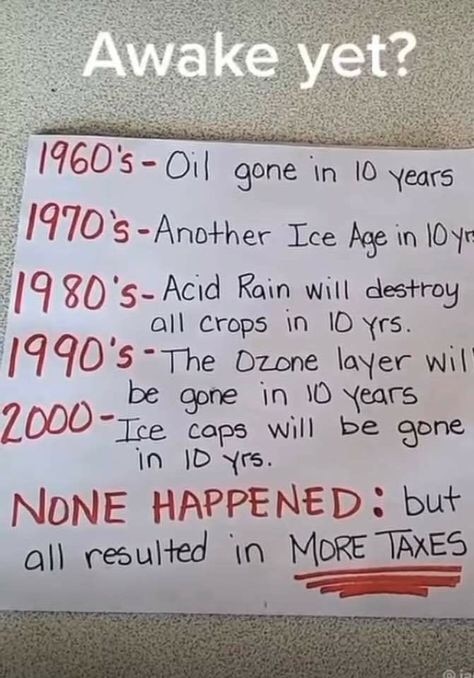 Awake yet?
1960's - Oil gone in 10 years
1970's - Another Ice Age in 10 yr
1980's - Acid Rain will destroy
all crops in 10 yrs.
1990's - The Ozone layer wil
be gone in 10 years
2000 - Ice caps will be gone
in 10 yrs.
NONE HAPPENED: but
all resulted in MORE TAXES